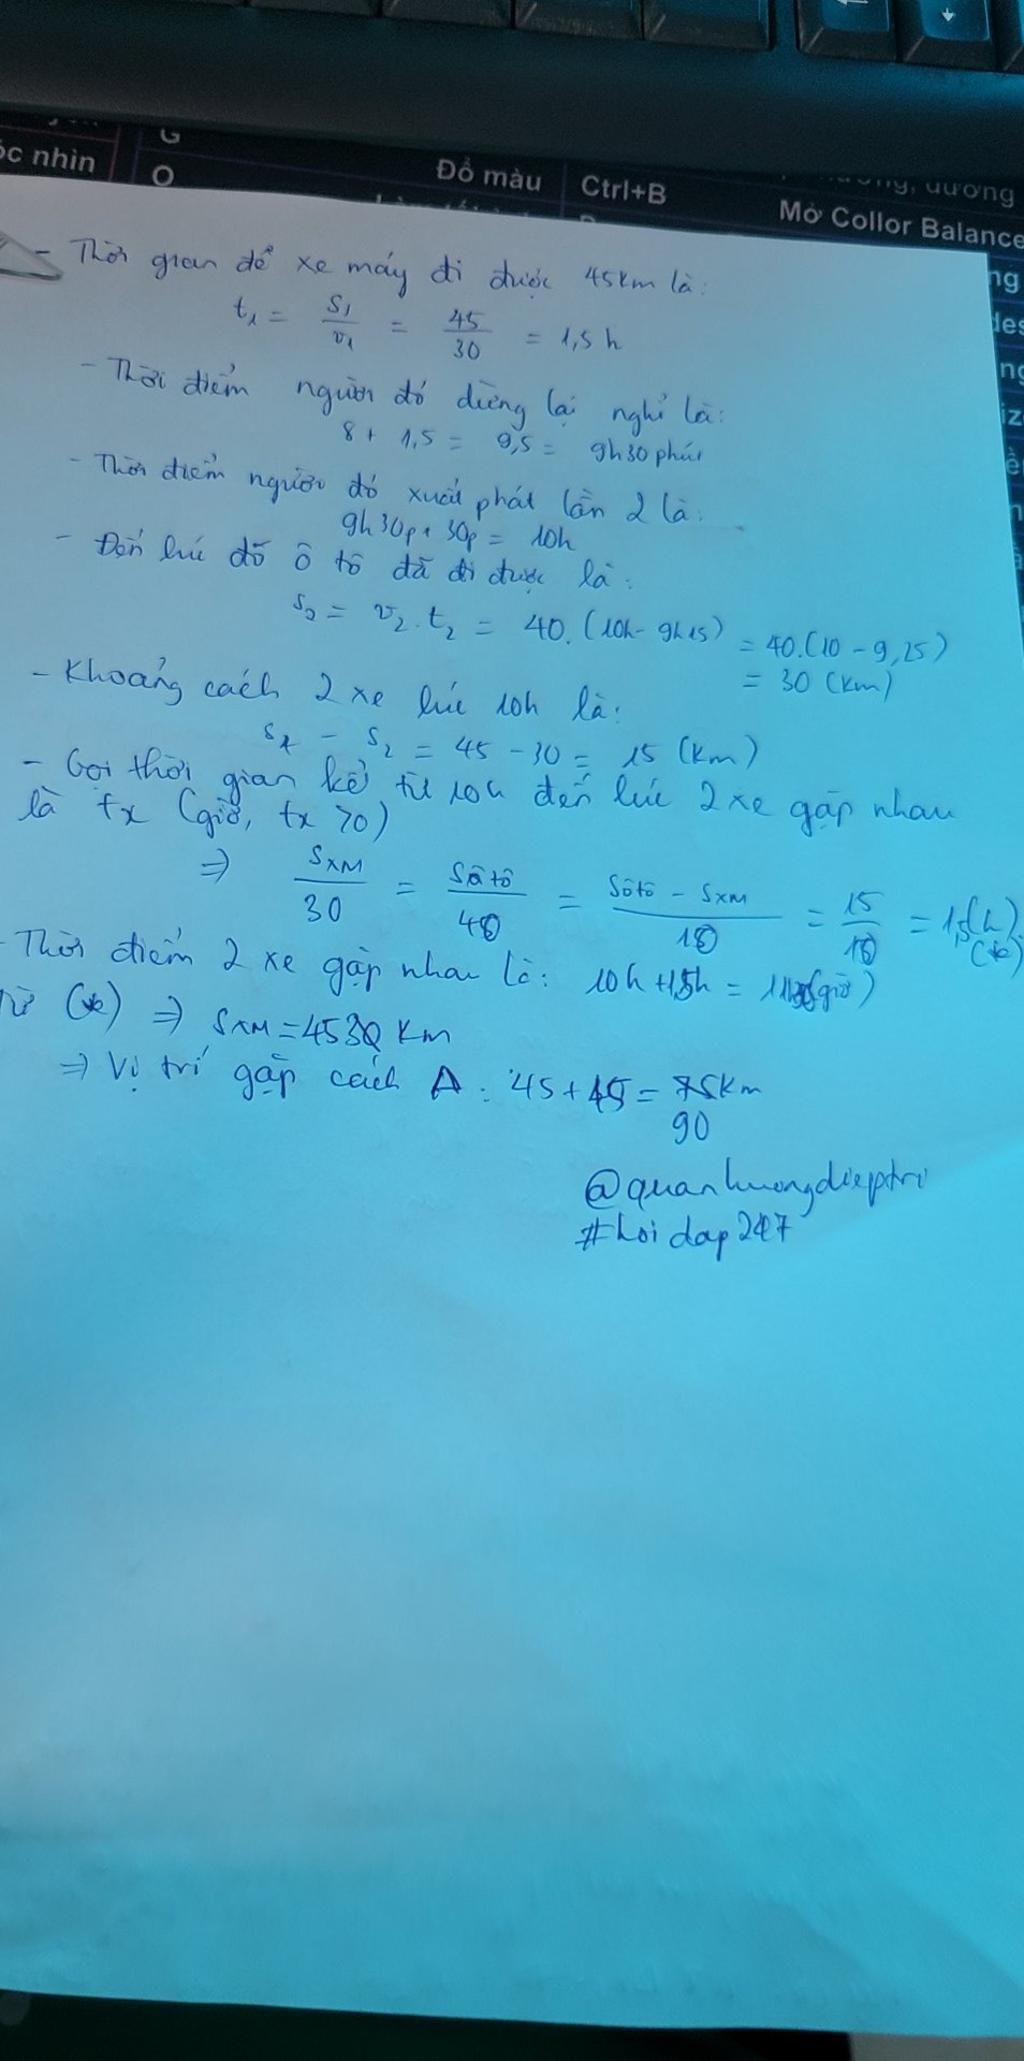 óc nhìn
G
O
Đổ màu
Ctrl+B
Mở Collor Balance
- Thời gian để xe máy đi được 45km là:
t₁ = S₁/v₁ = 45/30 = 1,5h
- Thời điểm người đó dừng lại nghỉ là:
8 + 1,5 = 9,5 = 9h30phút
- Thời điểm người đó xuất phát lần 2 là:
9h30p + 30p = 10h
- Đến lúc đó ô tô đã đi được là:
S₂ = v₂.t₂ = 40.(10h - 9h15) = 40.(10 - 9,25)
= 30 (km)
- Khoảng cách 2 xe lúc 10h là:
S₁ - S₂ = 45 - 30 = 15 (km)
- Gọi thời gian kể từ 10h đến lúc 2 xe gặp nhau
là tx (giờ, tx >0)
⇒ SXM/30 = Sôtô/40 = Sôtô - SXM/10 = 15/10 = 1,5(h) (*)
- Thời điểm 2 xe gặp nhau là: 10h + 1,5h = (giờ)
Từ (*) ⇒ SXM = 45 km
⇒ Vị trí gặp cách A: 45 + 45 = km
90
@quanhuongdieptri
#hoidap247